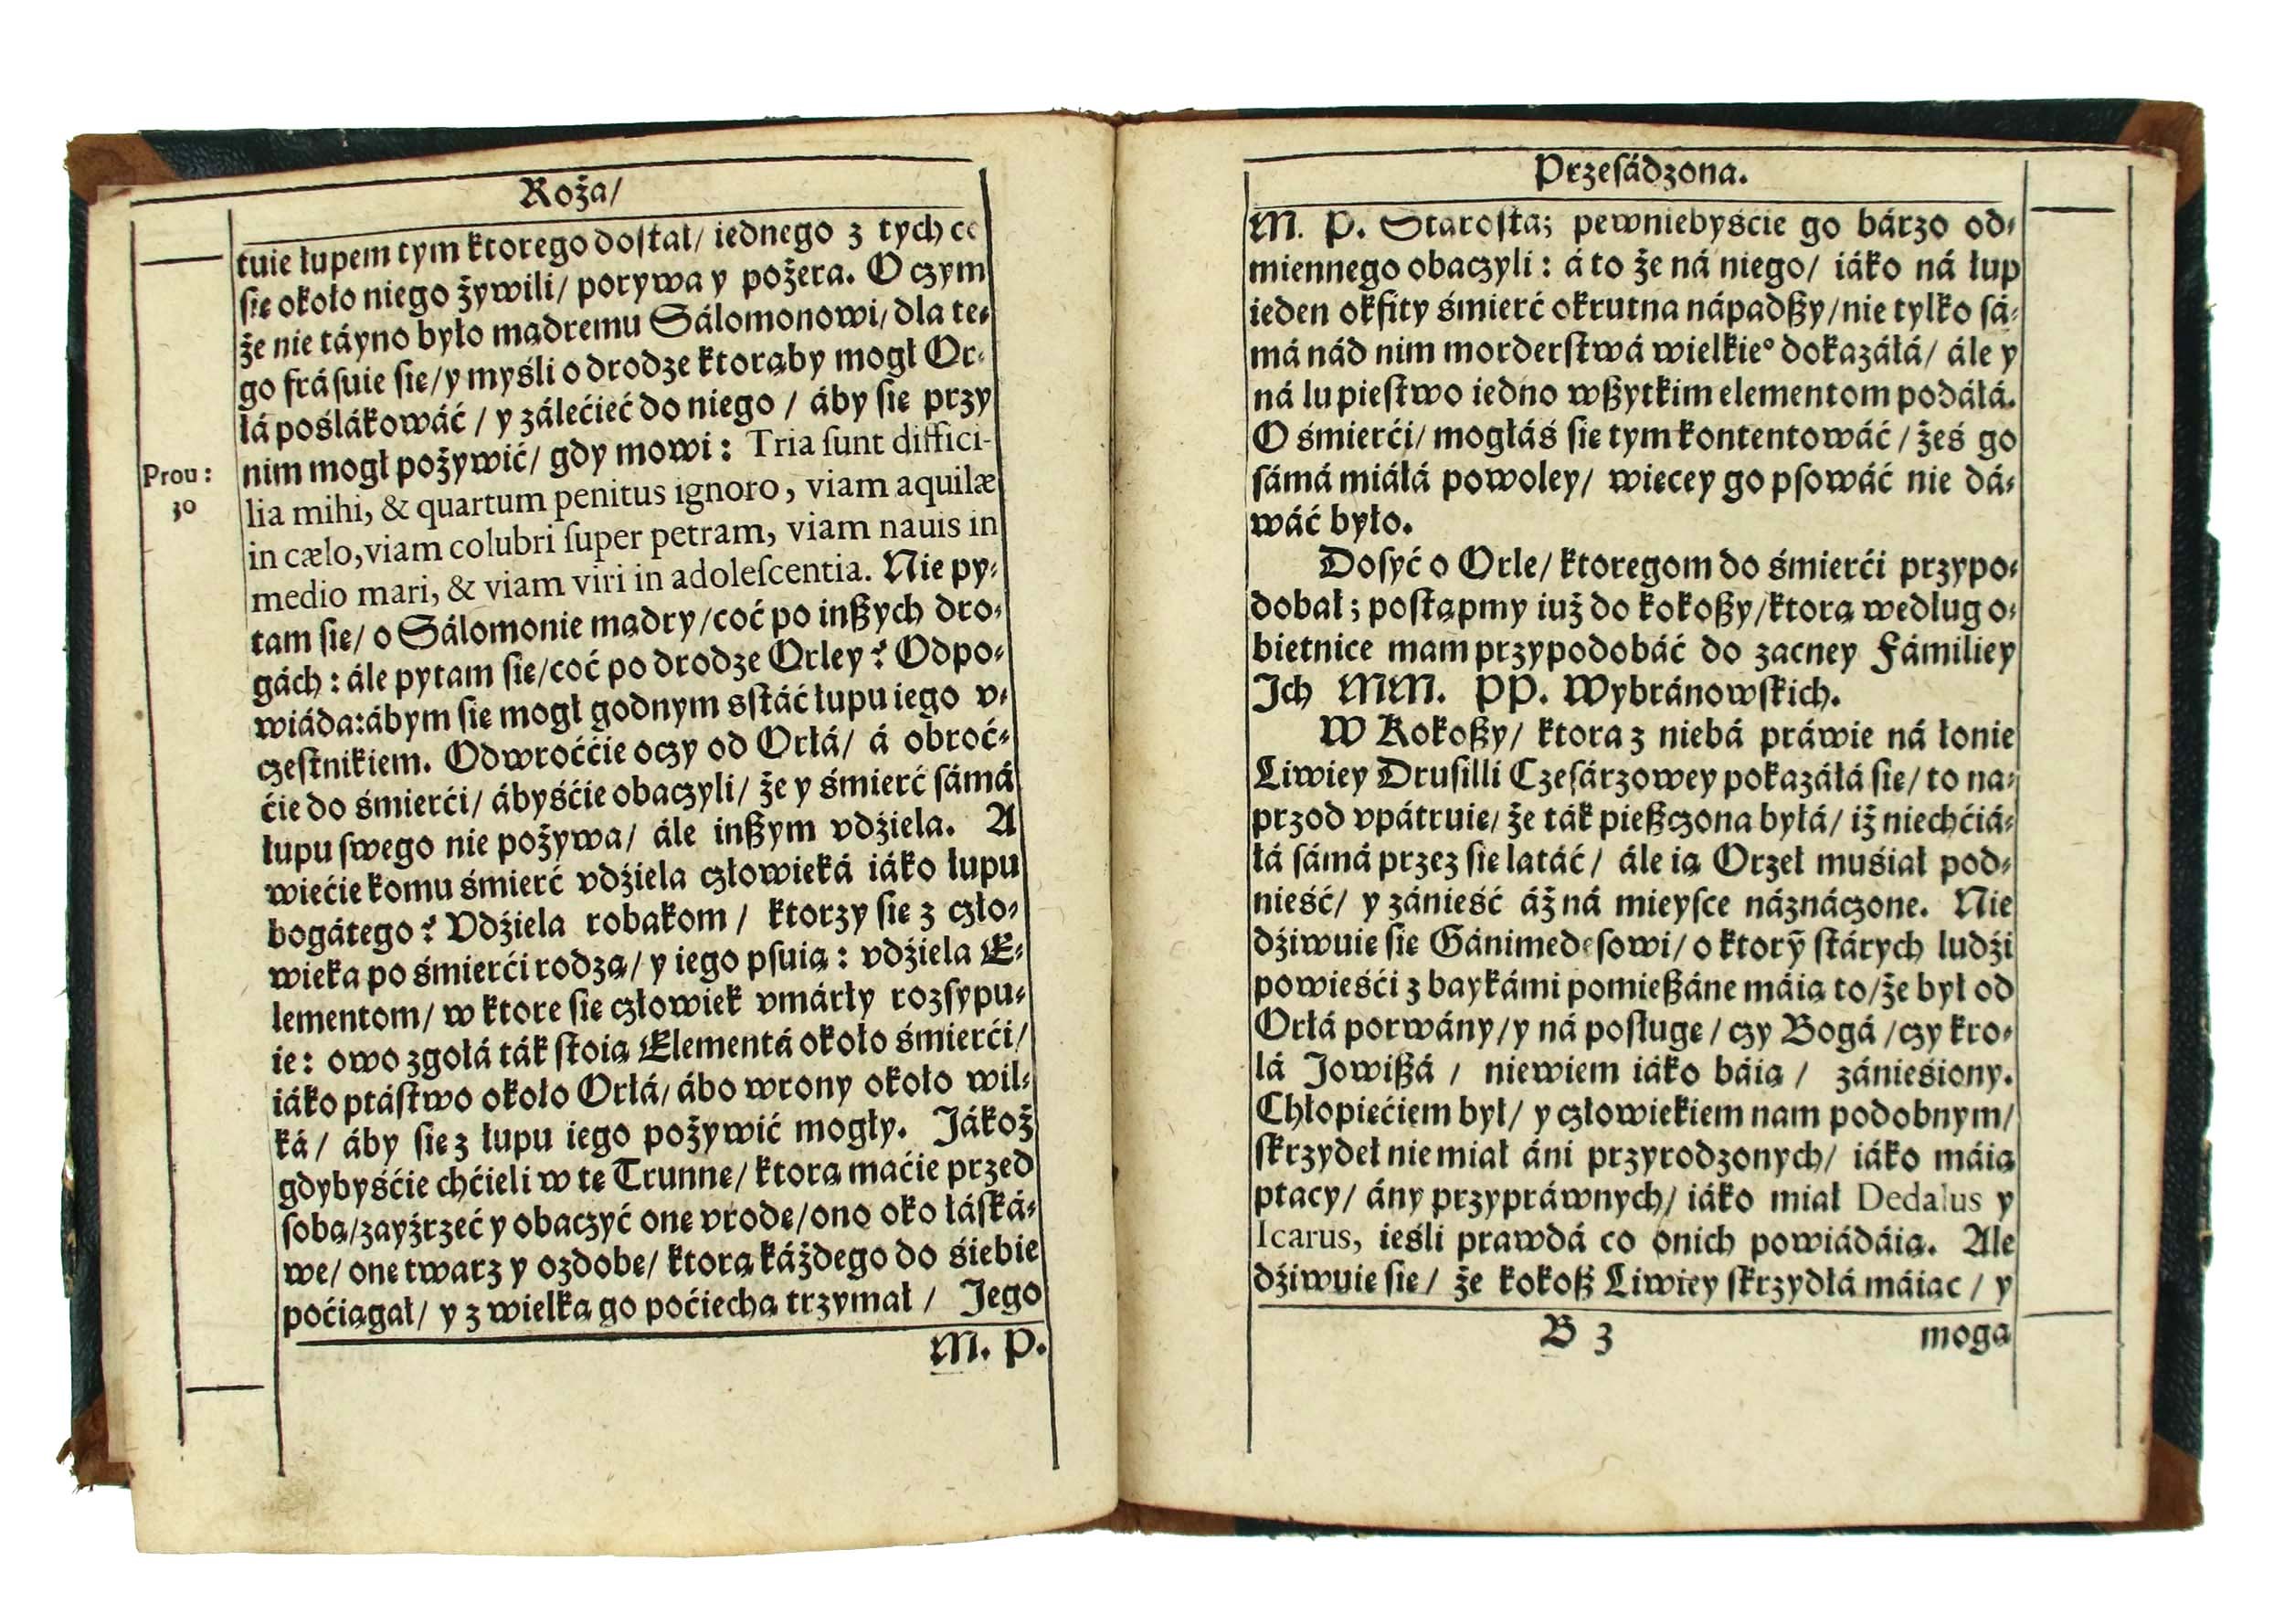 Roża/
tuie łupem tym ktorego dostał/ iednego z tych co
sie około niego żywili/ porywa y pożera. O czym
że nie táyno było mądremu Sálomonowi/ dla te-
go frásuie sie/ y myśli o drodze ktorąby mogł Or-
łá poślákowáć / y zálećieć do niego / áby sie przy
nim mogł pożywić/ gdy mowi: Tria ſunt diffici-
Prou:
30
lia mihi, & quartum penitus ignoro, viam aquilæ
in cælo, viam colubri ſuper petram, viam nauis in
medio mari, & viam viri in adoleſcentia. Nie py-
tam ſie/ o Sálomonie mądry/ coć po inßych dro-
gách: ále pytam ſie/ coć po drodze Orley? Odpo-
wiáda: ábym ſie mogł godnym sſtáć łupu iego v-
czeſtnikiem. Odwroććie oczy od Orłá/ á obroć-
ćie do śmierći/ ábyśćie obaczyli/ że y śmierć ſámá
łupu ſwego nie pożywa/ ále inßym vdźiela. A
wiećie komu śmierć vdźiela człowieká iáko łupu
bogátego? Vdźiela robakom / ktorzy ſie z czło-
wieka po śmierći rodzą/ y iego pſuią: vdźiela E-
lementom/ w ktore ſie człowiek vmárły rozſypu-
ie: owo zgołá ták ſtoią Elementá około śmierći/
iáko ptáſtwo około Orłá/ ábo wrony około wil-
ká/ áby ſie z łupu iego pożywić mogły. Jákoż
gdybyśćie chćieli w te Trunne/ ktorą maćie przed
ſobą/ zayźrzeć y obaczyć one vrode/ ono oko łáſká-
we/ one twarz y ozdobe/ ktorą káżdego do śiebie
poćiągał/ y z wielką go poćiechą trzymał / Jego
M. P.
Przeſádzona.
M. P. Staroſtá; pewniebyście go bárzo od-
miennego obaczyli: á to że ná niego/ iáko ná łup
ieden okfity śmierć okrutna nápadßy/ nie tylko ſá-
má nád nim morderſtwá wielkie° dokazáłá/ ále y
ná lupieſtwo iedno wßytkim elementom podáłá.
O śmierći/ mogłáś ſie tym kontentowáć/ żeś go
ſámá miáłá powoley/ wiecey go pſowáć nie dá-
wáć było.
Doſyć o Orle/ ktoregom do śmierći przypo-
dobał; poſtąpmy iuż do kokoßy/ ktorą wedlug o-
bietnice mam przypodobáć do zacney Fámiliey
Ich MM. PP. Wybránowſkich.
W Kokoßy/ ktora z niebá práwie ná łonie
Liwiey Druſilli Czeſárzowey pokazáłá ſie/ to na-
przod vpátruie/ że ták pießczona byłá/ iż niechćiá-
łá ſámá przez ſie latáć/ ále ią Orzeł muśiał pod-
nieść/ y zánieść áż ná mieyſce náznáczone. Nie
dźiwuie ſie Gánimedeſowi/ o ktorỹ ſtárych ludźi
powieśći z baykámi pomießáne máią to/ że był od
Orłá porwány/ y ná poſługe / czy Bogá / czy kro-
lá Jowißá / niewiem iáko báią / zánieśiony.
Chłopiećiem był/ y człowiekiem nam podobnym/
ſkrzydeł nie miał áni przyrodzonych/ iáko máią
ptacy/ ány przypráwnych/ iáko miał Dedalus y
Icarus, ieśli prawdá co onich powiádáią. Ale
dźiwuie ſie/ że kokoß Liwiey ſkrzydłá máiąc / y
B 3
mogą